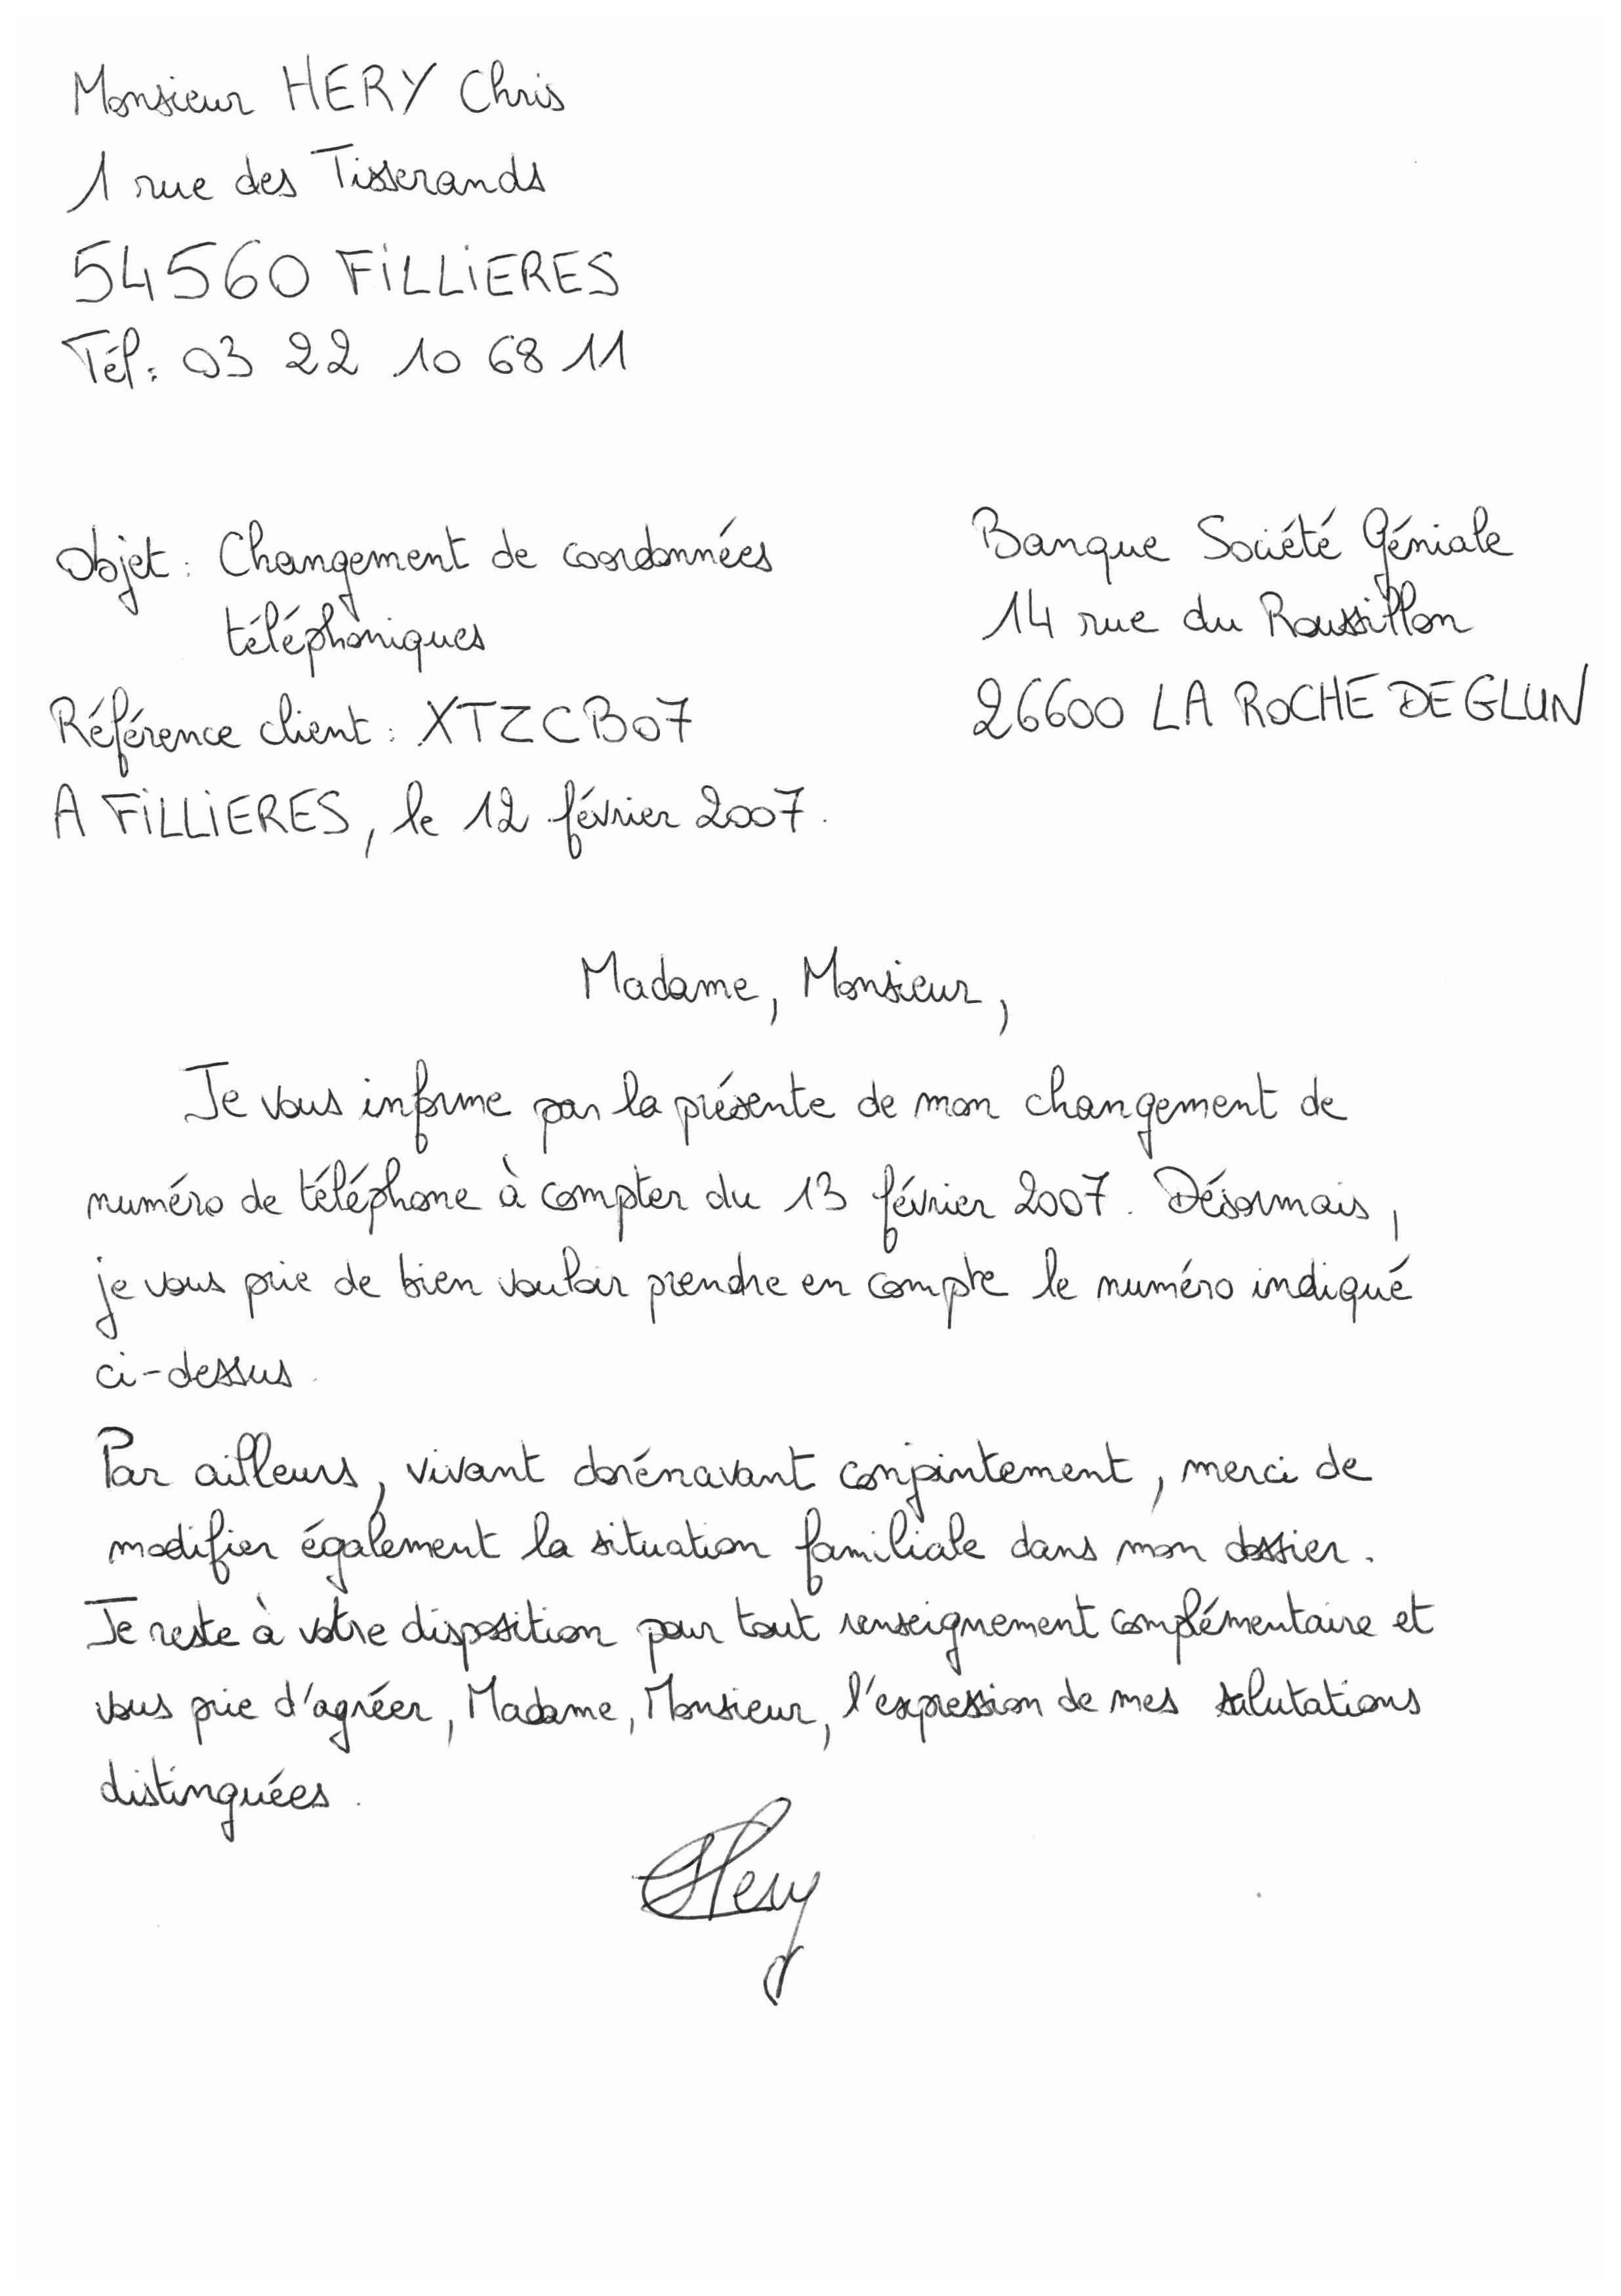 Monsieur HERY Chris
1 rue des Tisserands
54560 FILLIERES
Tél: 03 22 10 68 11
Objet : Changement de coordonnées
téléphoniques
Référence client : XTZCB07
A FILLIERES, le 12 février 2007.
Banque Société Géniale
14 rue du Roussillon
26600 LA ROCHE DE GLUN
Madame, Monsieur,
Je vous informe par la présente de mon changement de
numéro de téléphone à compter du 13 février 2007. Désormais,
je vous prie de bien vouloir prendre en compte le numéro indiqué
ci-dessus.
Par ailleurs, vivant dorénavant conjointement, merci de
modifier également la situation familiale dans mon dossier.
Je reste à votre disposition pour tout renseignement complémentaire et
vous prie d'agréer, Madame, Monsieur, l'expression de mes salutations
distinguées.
Hery